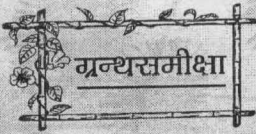 ग्रन्थसमीक्षा